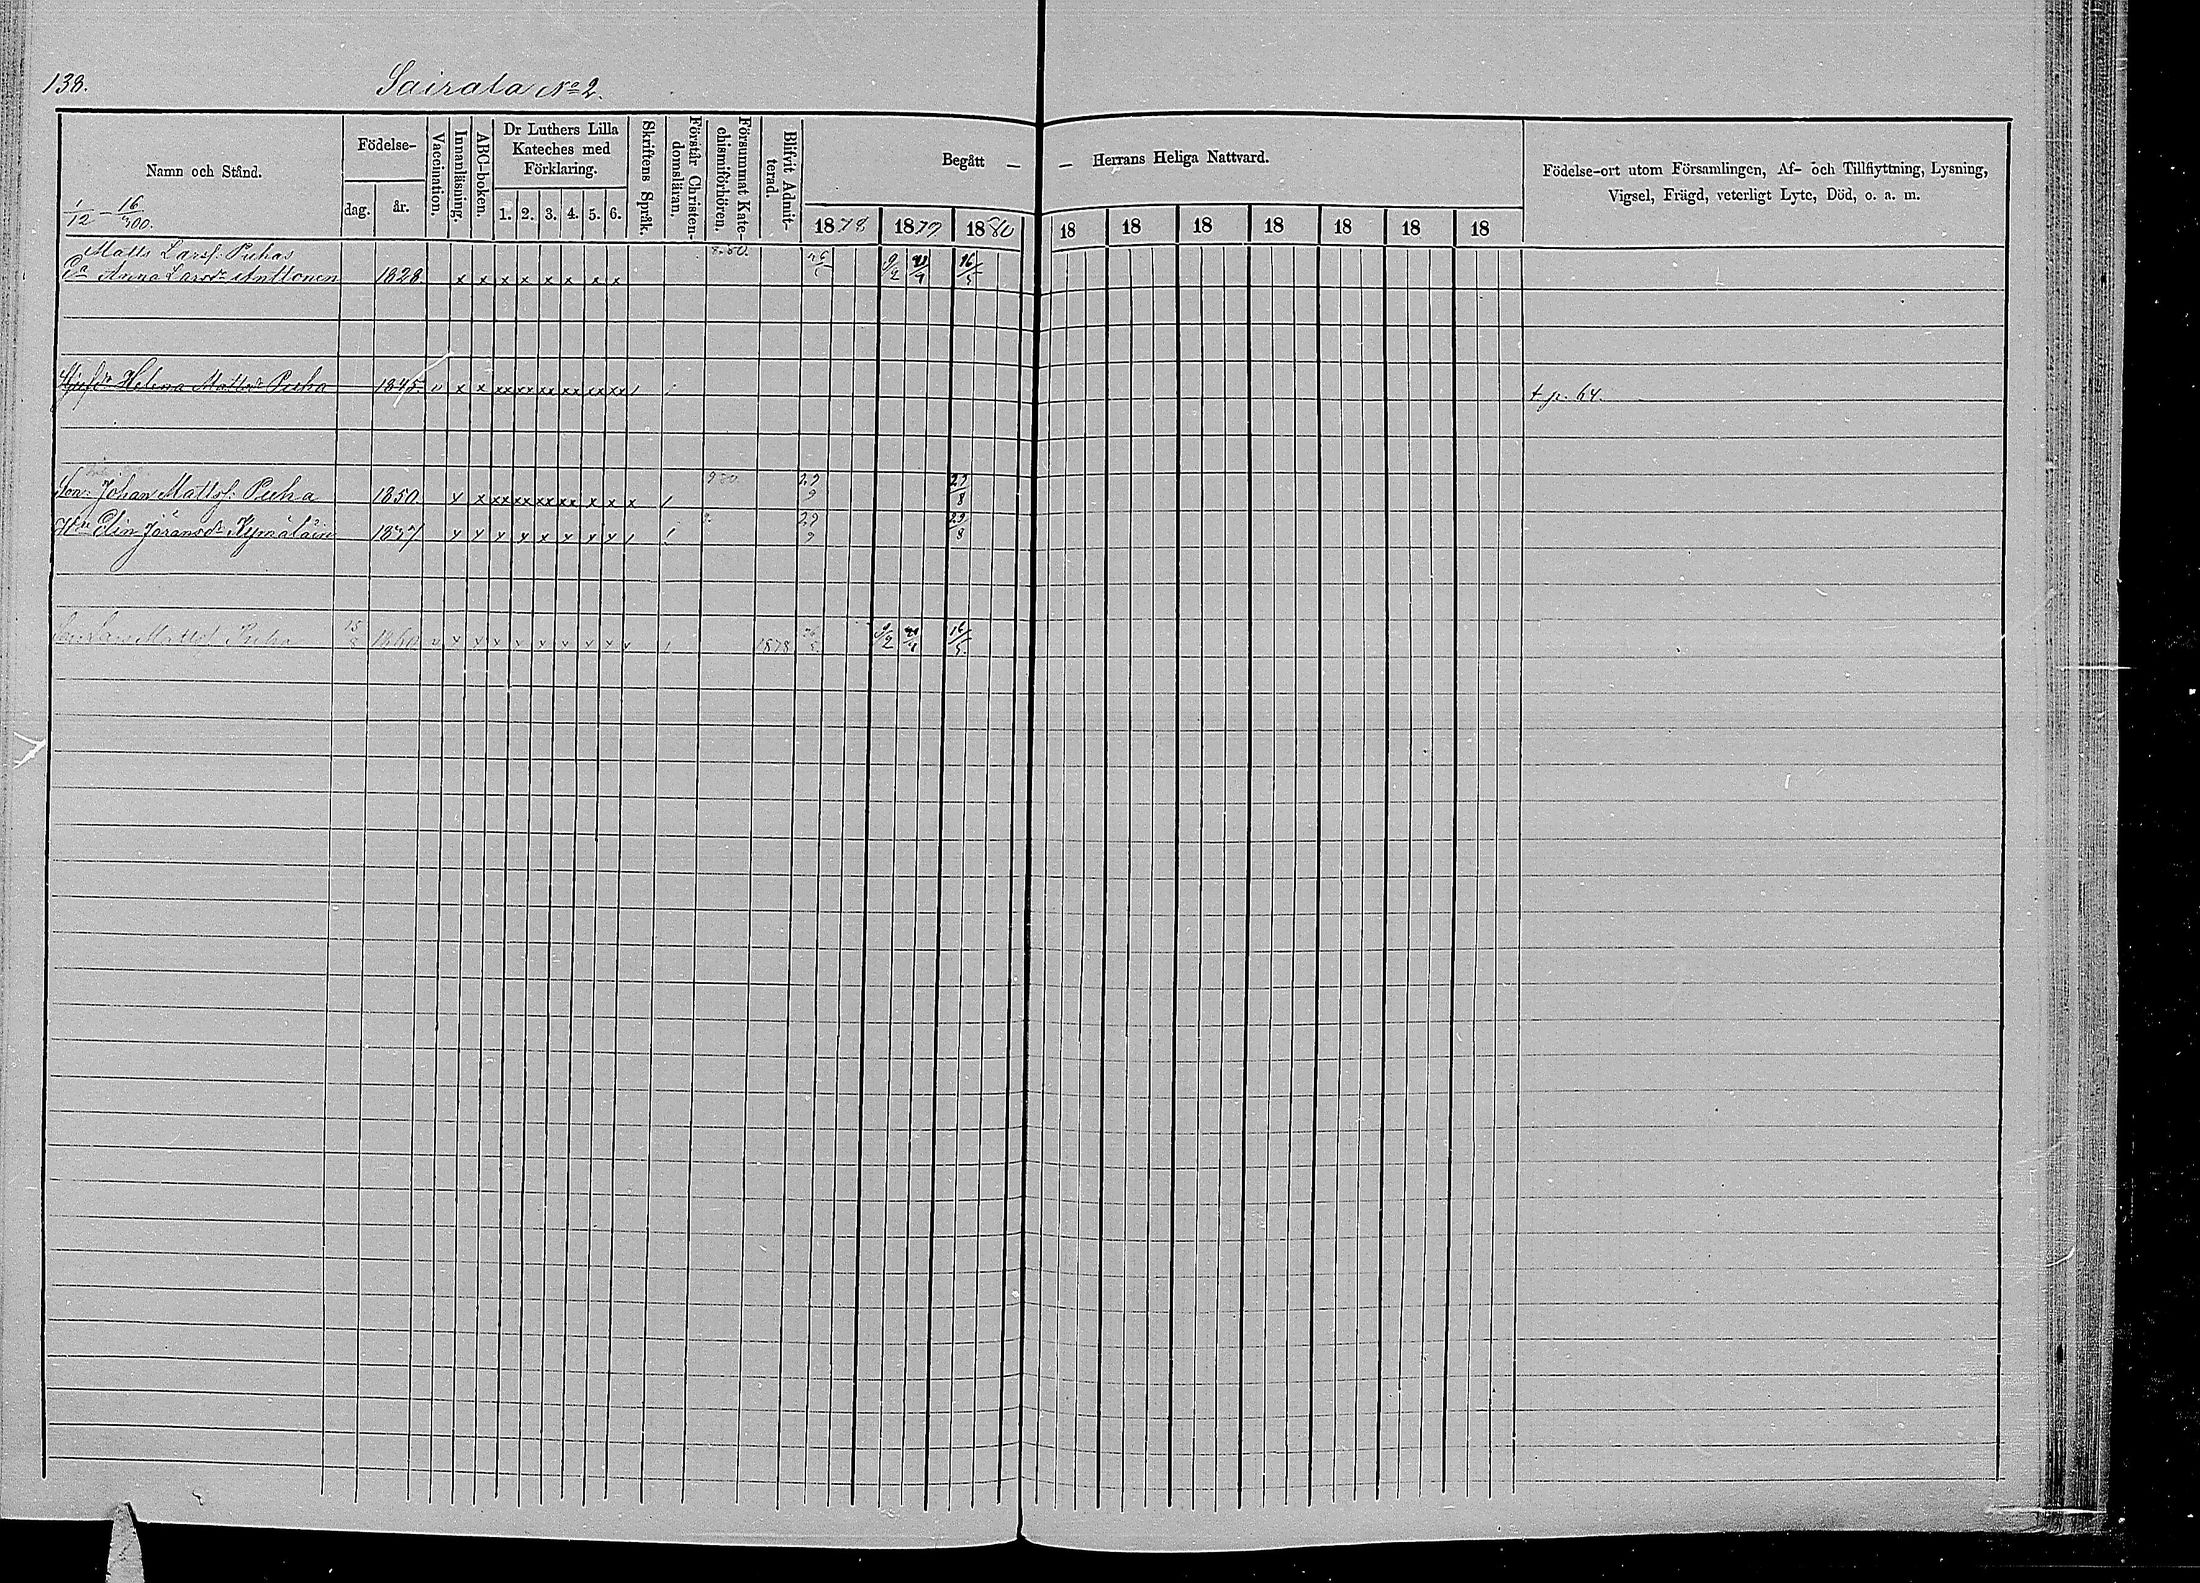 138.
Sairala No 2.
Namn och Stånd.
1/12 - 16/300.
Födelse-
dag.
år.
Vaccination.
Innanläsning.
ABC-boken.
Dr Luthers Lilla
Kateches med
Förklaring.
1. 2. 3. 4. 5. 6.
Skriftens Språk.
Förstår Christen-
domsläran.
Försummat Kate-
chismiförhören.
Blifvit Admit-
terad.
Begått — — Herrans Heliga Nattvard.
1878 1879 1880 18 18 18 18 18 18 18
Födelse-ort utom Församlingen, Af- och Tillflyttning, Lysning,
Vigsel, Frägd, veterligt Lyte, Död, o. a. m.
Matts Larsf: Puhas
Ea Anna Larsdr Anttonen 1828. x x x x x x x x 9/2 16/5
Helena Mattsdr Puha 1845 x x xx xx xx xx xx xx t p. 64.
Son: Johan Mattsf: Puha 1850 x x xx xx xx xx x x x 29/9 29/8
Hu Elin Jöransdr Kymäläin 1857 x x x x x x x x 29/9 29/8
Son Lars Mattsf Puha 1860 x x x x x x x x 1878 9/2 16/5